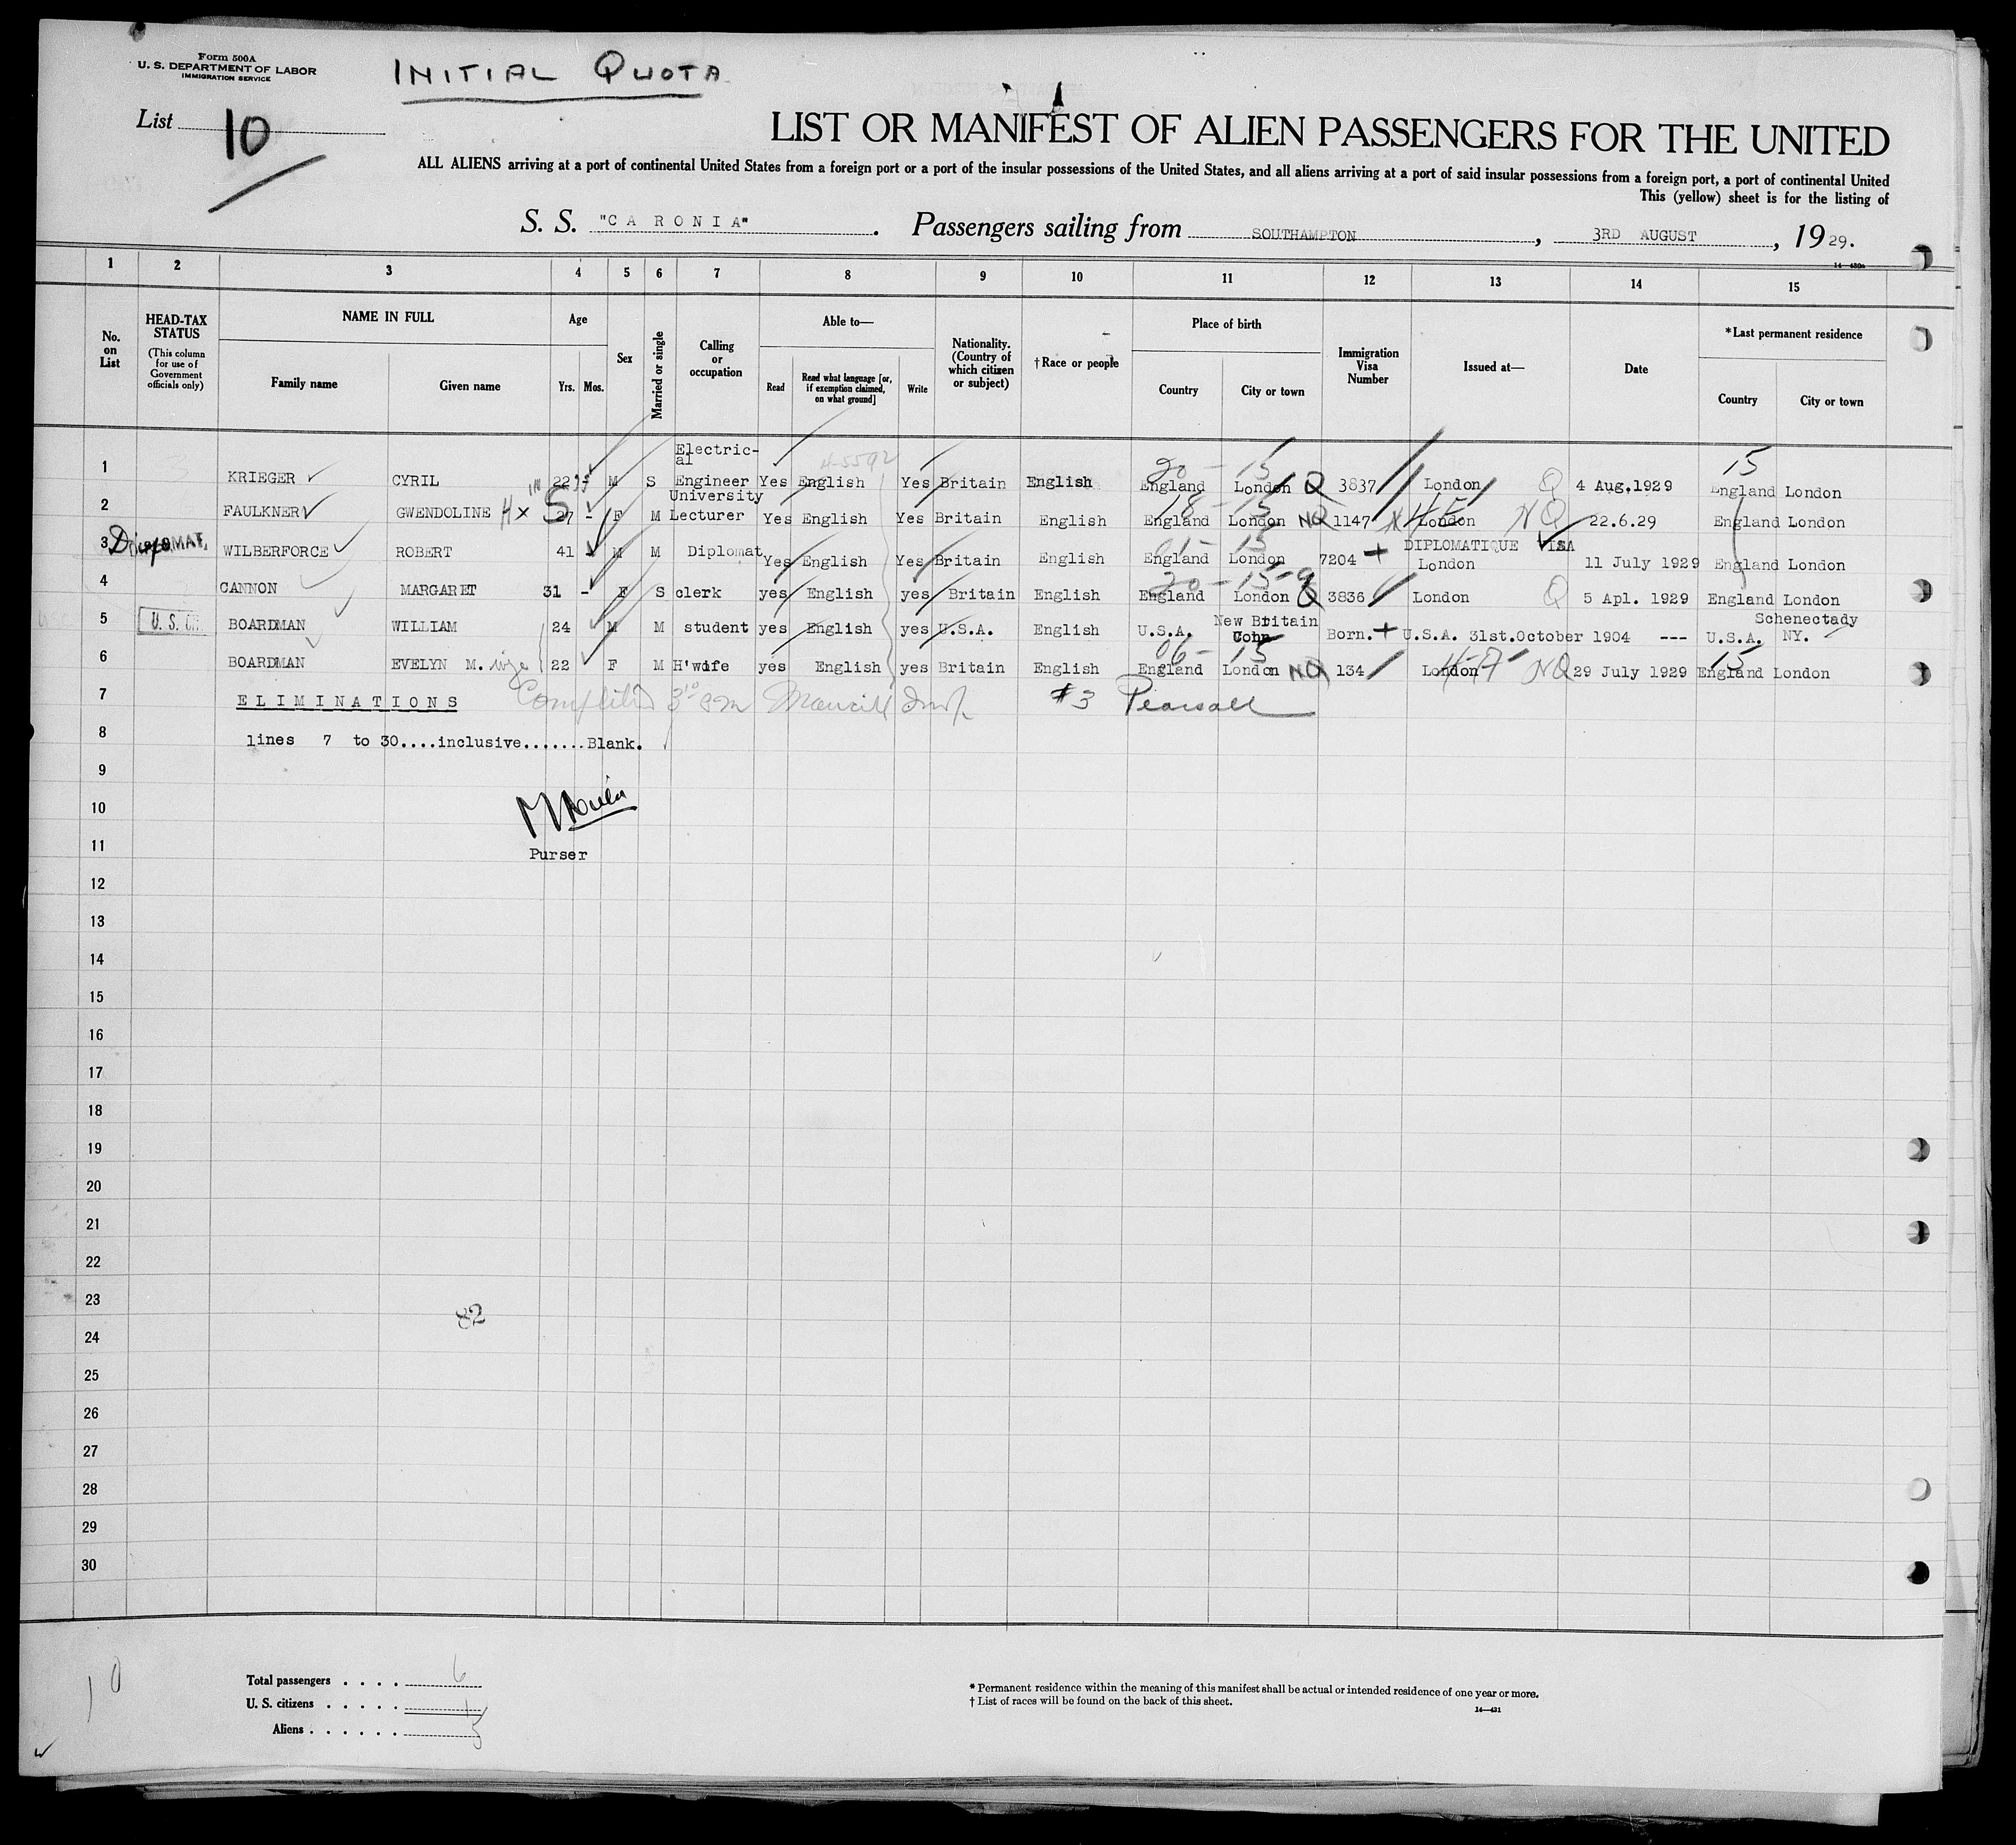 Form 500A
U. S. DEPARTMENT OF LABOR
IMMIGRATION SERVICE
INITIAL QUOTA
List 10
LIST OR MANIFEST OF ALIEN PASSENGERS FOR THE UNITED
ALL ALIENS arriving at a port of continental United States from a foreign port or a port of the insular possessions of the United States, and all aliens arriving at a port of said insular possessions from a foreign port, a port of continental United
This (yellow) sheet is for the listing of
S. S. "CARONIA". Passengers sailing from SOUTHAMPTON, 3RD AUGUST, 1929.
1 2 3 4 5 6 7 8 9 10 11 12 13 14 15
No. on List
HEAD-TAX STATUS
(This column for use of Government officials only)
NAME IN FULL
Family name
Given name
Age
Yrs. Mos.
Sex
Married or single
Calling or occupation
Able to—
Read
Read what language [or, if exemption claimed, on what ground]
Write
Nationality. (Country of which citizen or subject)
†Race or people
Place of birth
Country
City or town
Immigration Visa Number
Issued at—
Date
*Last permanent residence
Country
City or town
1 KRIEGER CYRIL 22 M S Electric-al Engineer Yes English Yes Britain English England London Q 3837 London Q 4 Aug.1929 England London
20 - 15 15
2 FAULKNER GWENDOLINE 27 - F M University Lecturer Yes English Yes Britain English England London NQ 1147 London NQ 22.6.29 England London
18 - 15
3 DIPLOMAT. WILBERFORCE ROBERT 41 - M M Diplomat Yes English Yes Britain English England London 7204 DIPLOMATIQUE VISA London 11 July 1929 England London
4 CANNON MARGARET 31 - F S clerk yes English yes Britain English England London Q 3836 London Q 5 Apl. 1929 England London
5 BOARDMAN WILLIAM 24 M M student yes English yes U.S.A. English U.S.A. New Britain Conn Born. U.S.A. 31st.October 1904 --- U.S.A. Schenectady NY.
6 BOARDMAN EVELYN M. wife 22 F M H'wife yes English yes Britain English England London NQ 134 London NQ 29 July 1929 England London
06 - 15 15
7 ELIMINATIONS #3 Pearsall
8 lines 7 to 30....inclusive.......Blank.
9
10
11 Purser
12
13
14
15
16
17
18
19
20
21
22
23
82
24
25
26
27
28
29
30
10
Total passengers . . . . 6
U. S. citizens . . . . . 1
Aliens . . . . . . 5
* Permanent residence within the meaning of this manifest shall be actual or intended residence of one year or more.
† List of races will be found on the back of this sheet.
14—431